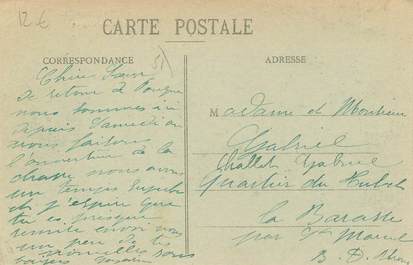 12 €
CARTE POSTALE
CORRESPONDANCE
ADRESSE
Chère
De retour de
nous sommes ici
depuis Samedi
nous faisons
l'ouverture de la
chasse nous avons
un temps superbe
j'espère que
tu es presque
remise envoi nous
un peu de tes
nouvelles
Madame et Monsieur
Gabriel
Challet Gabriel
Quartier du
la Barasse
par St Marcel
B. D. Rhône